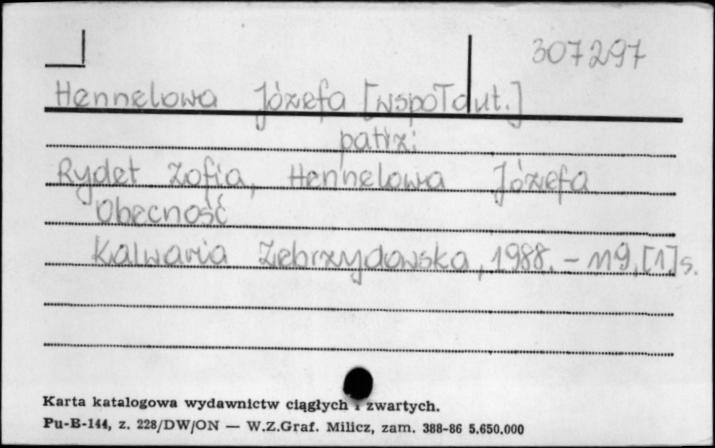 307297
Hennelowa Józefa [współaut.]
patrz:
Rydet Zofia, Hennelowa Józefa
Obecność
Kalwaria Zebrzydowska, 1988. - 119, [1] s.
Karta katalogowa wydawnictw ciągłych i zwartych.
Pu-B-144, z. 228/DW/ON — W.Z.Graf. Milicz, zam. 388-86 5.650.000